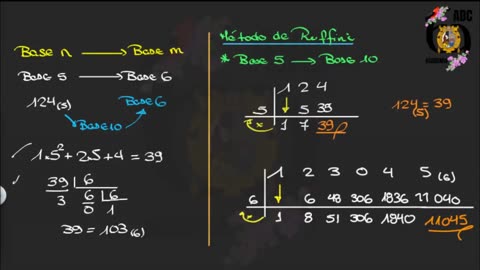 Base n → Base m
Base 5 → Base 6
124(5) Base 6
Base 10
1.5²+2.5+4 = 39
39 | 6
3 6 | 6
0 1
39 = 103(6)
Método de Ruffini
* Base 5 → Base 10
1 2 4
5 5 35
x 1 7 39
124(5) = 39
1 2 3 0 4 5 (6)
6 6 48 306 1836 11040
x 1 8 51 306 1840 11045
ADC